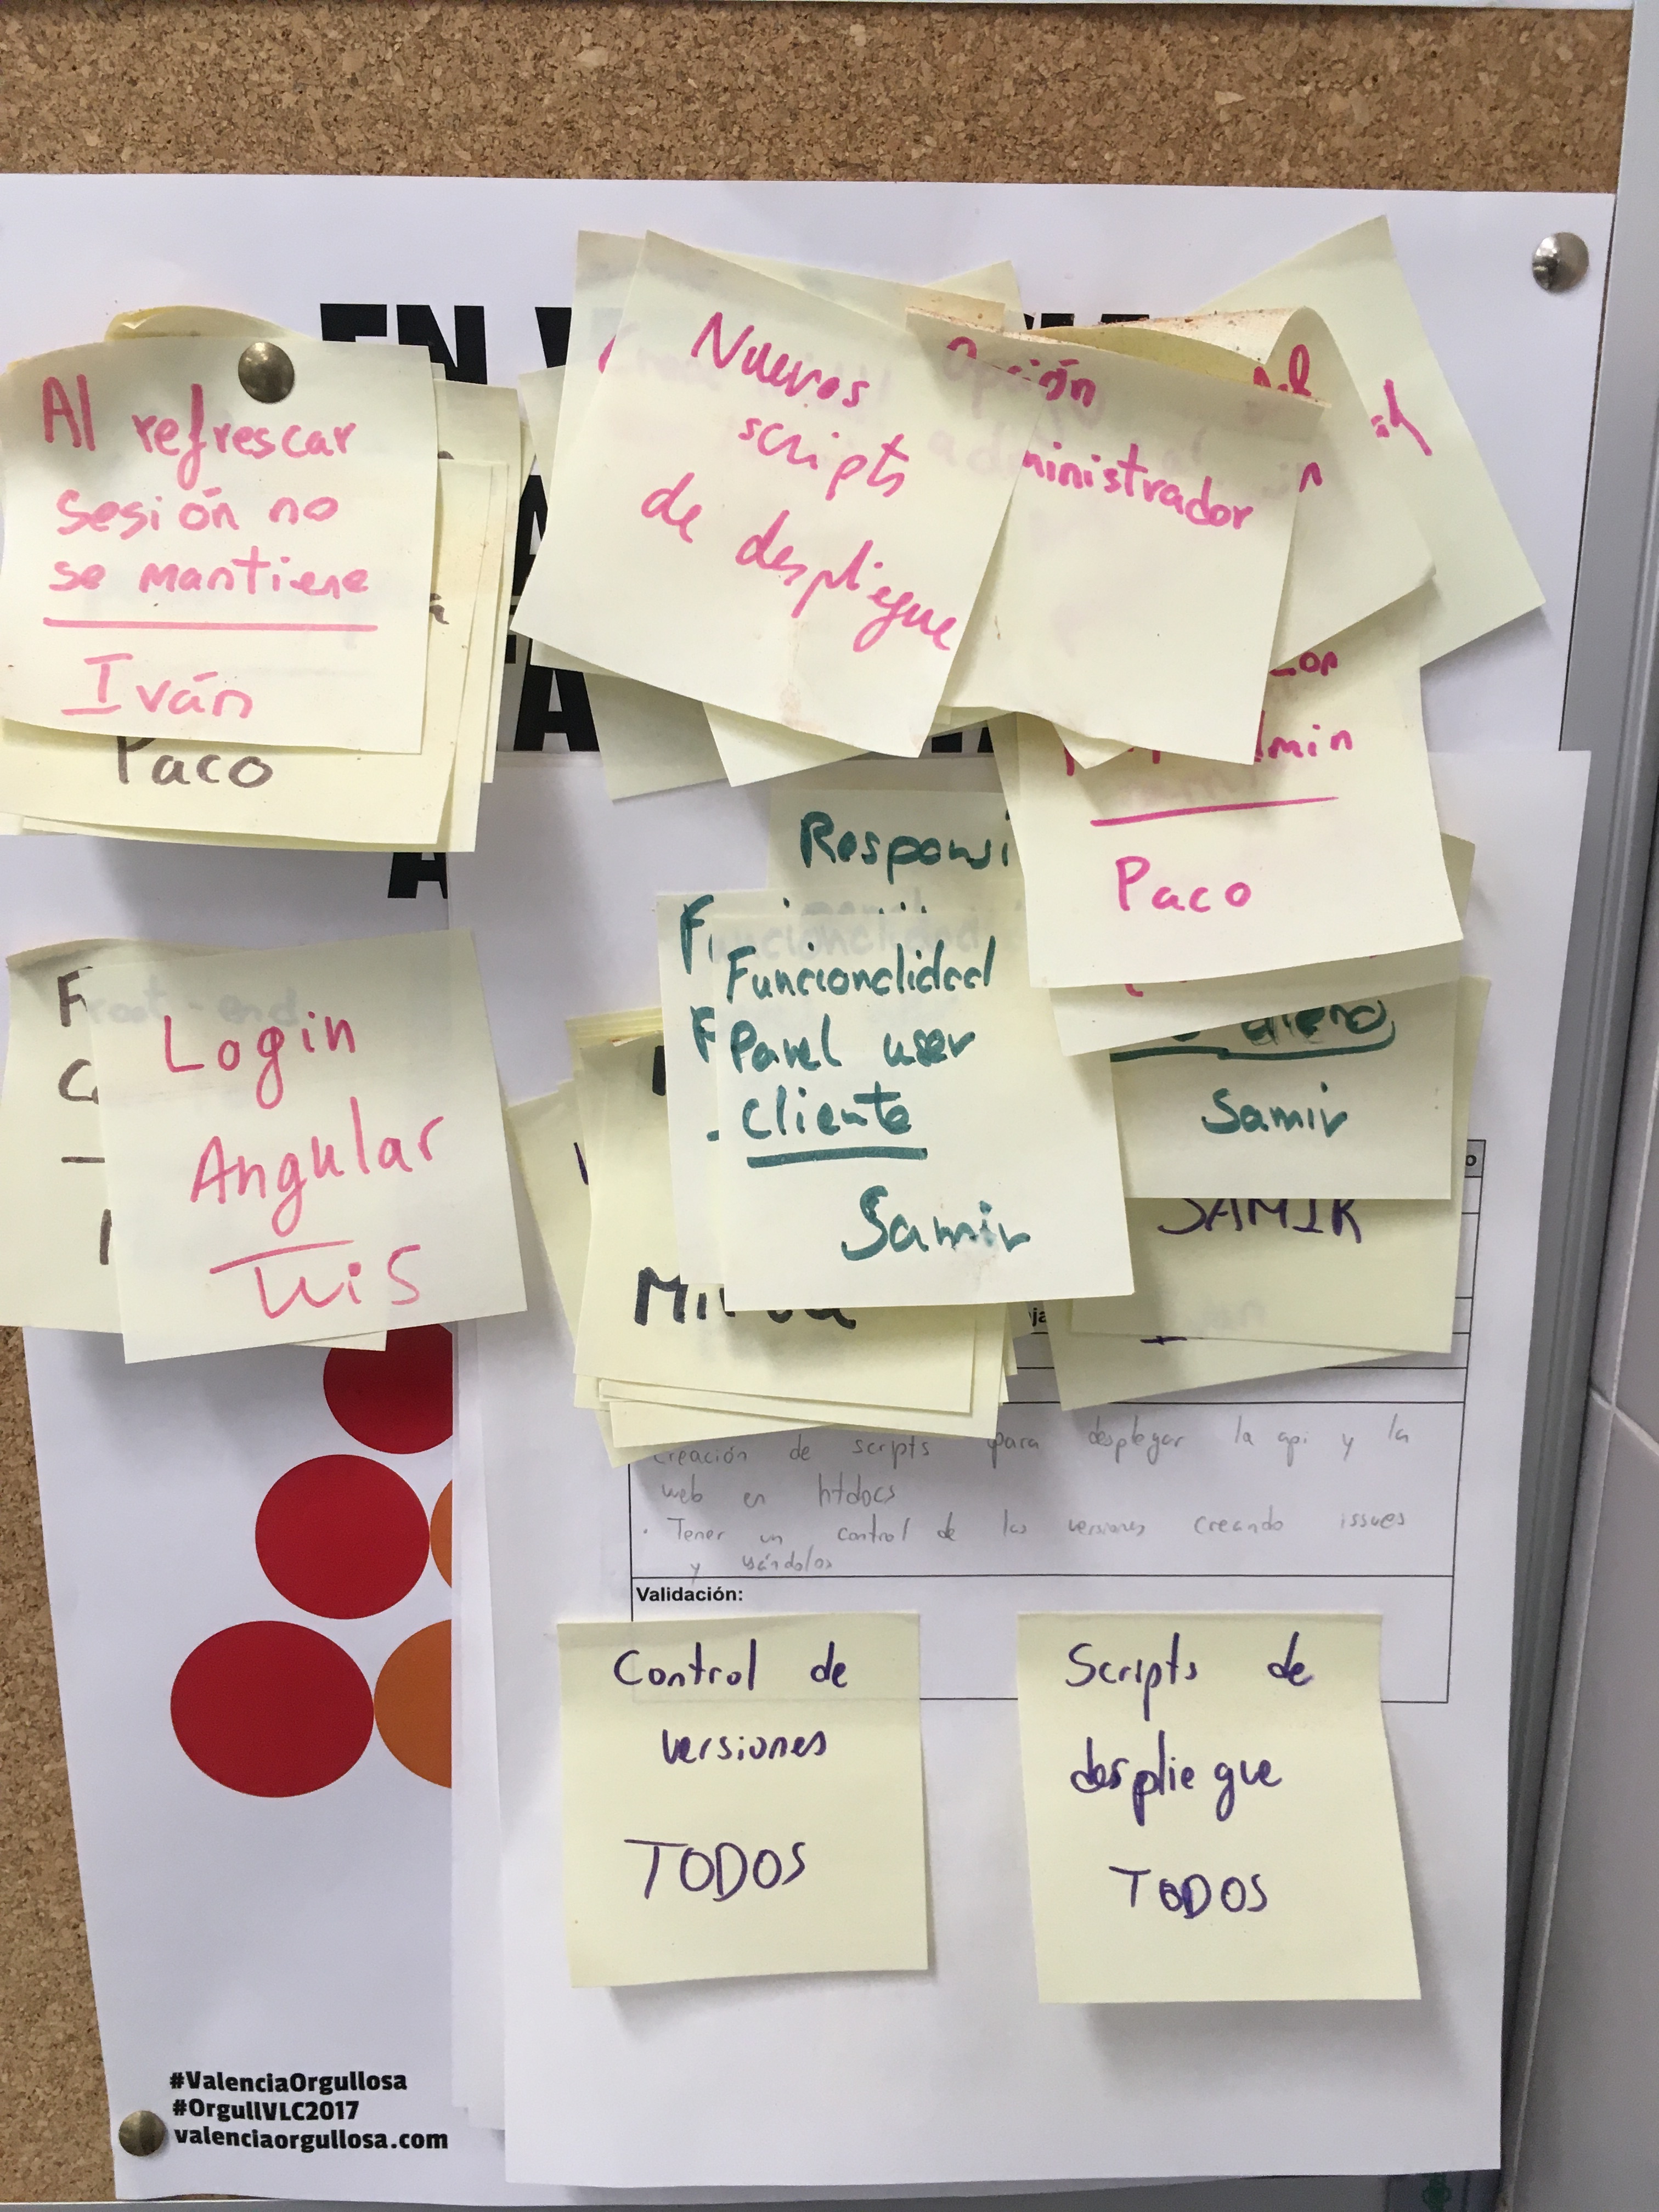 EN
Al refrescar
sesión no
se mantiene
Iván
Paco
Nuevos
scripts
de despliegue
Opción
administrador
Paco
Login
Angular
Luis
Responsi
Funcionalidad
Panel user
cliente
Samir
Samir
SAMIR
creación de scripts para desplegar la api y la
web en htdocs
· Tener un control de las versiones creando issues
y usándolos
Validación:
Control de
versiones
TODOS
Scripts de
despliegue
TODOS
#ValenciaOrgullosa
#OrgullVLC2017
valenciaorgullosa.com